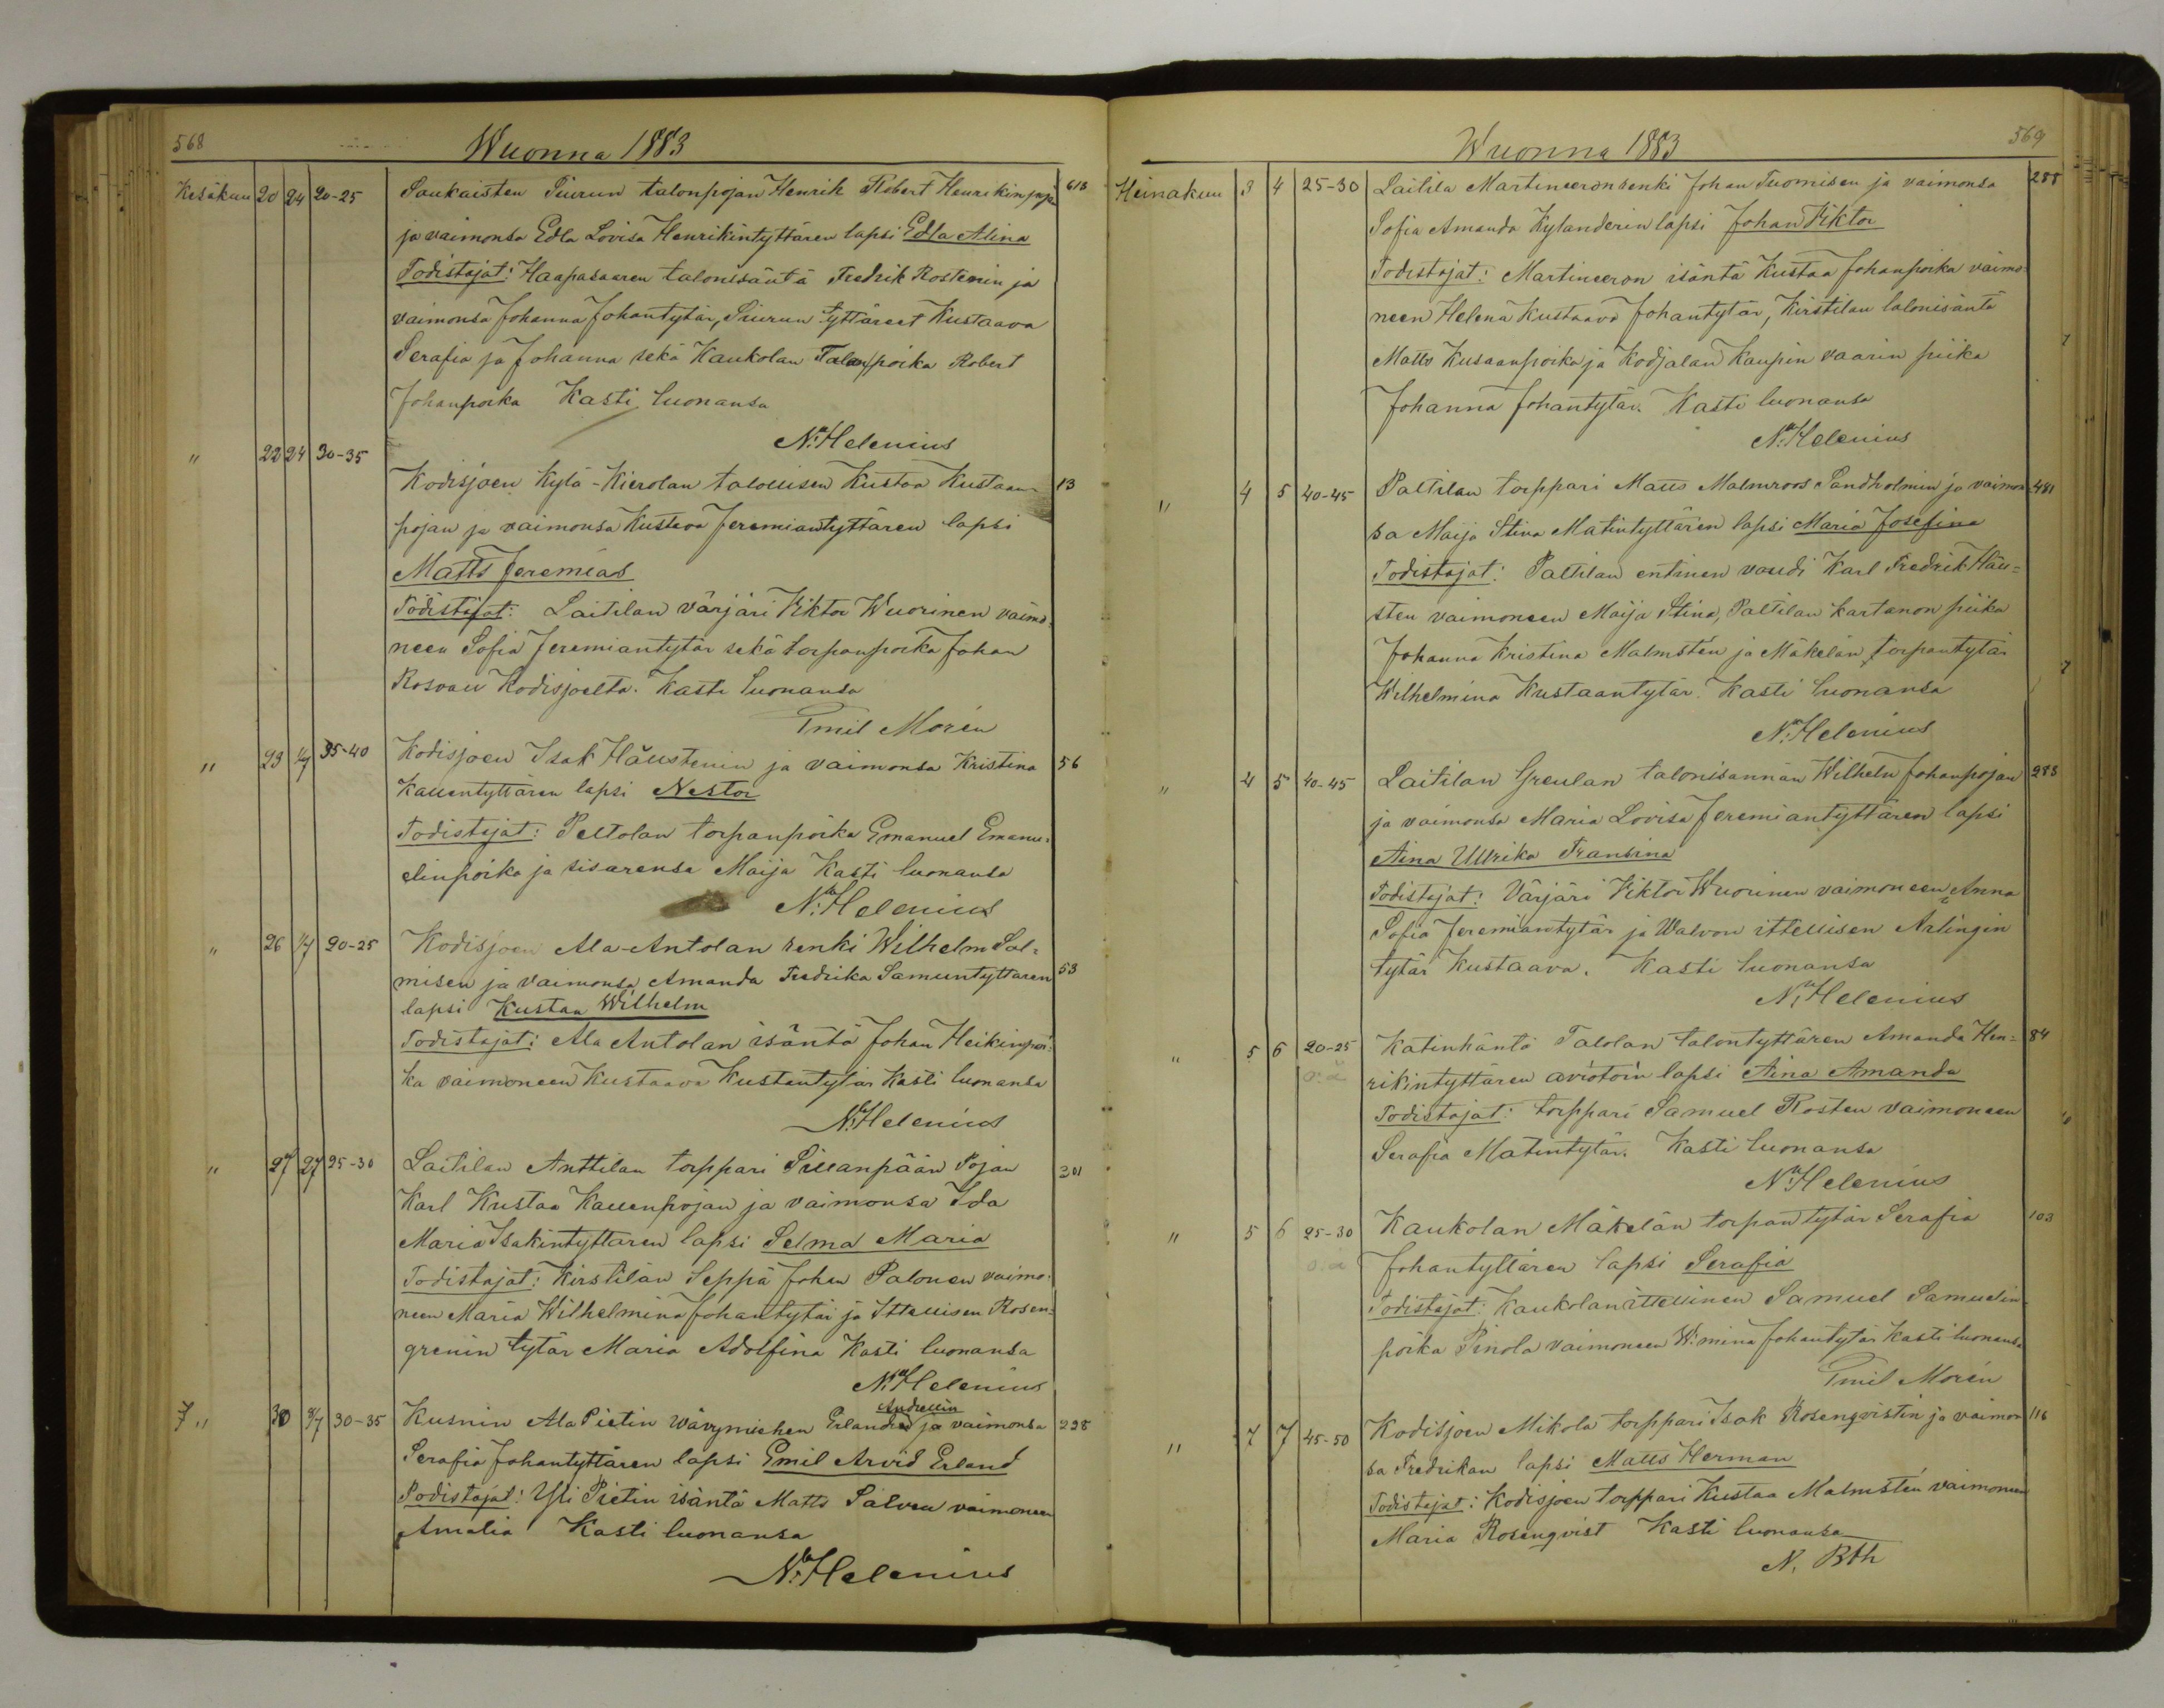 568
Wuonna 1883
Kesäkuu 20 24 20-25 Soukaisten Siurun talonpojan Henrik Robert Henrikinpojan 613
ja vaimonsa Edla Lovisa Henrikintyttären lapsi Edla Alina
Todistajat: Haapasaaren talonisäntä Fredrik Rostenin ja
vaimonsa Johanna Johantytär, Siurun tyttäreet Kustaava
Serafia ja Johanna sekä Kaukolan Talonpoika Robert
Johanpoika Kasti luonansa
N: Helenius
" 22 24 30-35
Kodisjoen Kylä-Kierolan talollisen Kustaa Kustaan- 13
pojan ja vaimonsa Kustava Jeremiantyttären lapsi
Matts Jeremias
Todistajat: Laitilan värjäri Viktor Wuorinen vaimo-
neen Sofia Jeremiantytär sekä torpanpoika Johan
Rosvall Kodisjoelta. Kasti luonansa
Emil Morén
" 23 1/7 35-40 Kodisjoen Isak Häustenin ja vaimonsa Kristina 56
Kallentyttären lapsi Nestor
Todistajat: Peltolan torpanpoika Emanuel Emanu-
elinpoika ja sisarensa Maija Kasti luonansa
N: Helenius
" 26 1/7 20-25 Kodisjoen Ala-Antolan renki Wilhelm Sal-
misen ja vaimonsa Amanda Fredrika Samuntyttären 53
lapsi Kustaa Wilhelm
Todistajat: Ala Antolan isäntä Johan Heikinpoi-
ka vaimoneen Kustaava Kustantytär Kasti luonansa
N: Helenius
" 27 27 25-30 Laitilan Anttilan torppari Sillanpään Pojan 301
Karl Kustaa Kallenpojan ja vaimonsa Ida
Maria Isakintyttären lapsi Selma Maria
Todistajat: Kirstilän Seppä Johan Palonen vaimo-
neen Maria Wilhelmina Johantytär ja Ittellisen Rosen-
grenin tytär Maria Adolfina Kasti luonansa
N: Helenius
Andellin
" 30 8/7 30-35 Kusnin Ala Pietin Wävymiehen Erland ja vaimonsa 228
Serafia Johantyttären lapsi Emil Arvid Erland
Todistajat: Yli Pietin isäntä Matts Salven vaimoneen
Amalia Kasti luonansa
N: Helenius
569
Wuonna 1883
Heinakuu 3 4 25-30 Laitila Martineeron renki Johan Tuomisen ja vaimonsa 288
Sofia Amanda Kylanderin lapsi Johan Viktor
Todistajat: Martineeron isäntä Kustaa Johanpoika vaimo-
neen Helena Kustaava Johantytär, Kirstilan talonisäntä
Matts Kusaanpoika ja Kodjalan Kaupin vaarin piika
Johanna Johantytär. Kasti luonansa
N: Helenius
" 4 5 40-45 Palttilan torppari Matts Malmroos Sandholmin ja vaimon- 481
sa Maija Stina Matintyttären lapsi Maria Josefina
Todistajat: Palttilan entinen vouti Karl Fredrik Häu-
sten vaimoneen Maija Stina, Palttilan kartanon piika
Johanna Kristina Malmstén ja Mäkelän torpantytär
Wilhelmina Kustaantytär. Kasti luonansa
N: Helenius
" 4 5 40-45 Laitilan Greulan talonisannän Wilhelm Johanpojan 283
ja vaimonsa Maria Lovisa Jeremiantyttären lapsi
Aina Ulrika Fransina
Todistajat: Värjäri Viktor Wuorinen vaimoneen Anna
Sofia Jeremiantytär ja Walvon ittellisen Arlingin
tytär Kustaava. Kasti luonansa
N: Helenius
" 5 6 20-25 Katinhäntä Talolan talontyttären Amanda Hen- 84
rikintyttären aviotoin lapsi Aina Amanda
Todistajat: torppari Samuel Rosten vaimoneen
Serafia Matintytär. Kasti luonansa
N: Helenius
" 5 6 25-30 Kaukolan Mäkelän torpantytär Serafia 103
Johantyttären lapsi Serafia
Todistajat: Kaukolan ittellinen Samuel Samuelin-
poika Pinola vaimoneen W:mina Johantytär Kasti luonansa
Emil Morén
" 7 7 45-50 Kodisjoen Mikola torppari Isak Rosenqvistin ja vaimon- 116
sa Fredrikan lapsi Matts Herman
Todistajat: Kodisjoen torppari Kustaa Malmstén vaimoneen
Maria Rosenqvist Kasti luonansa
N. Bth